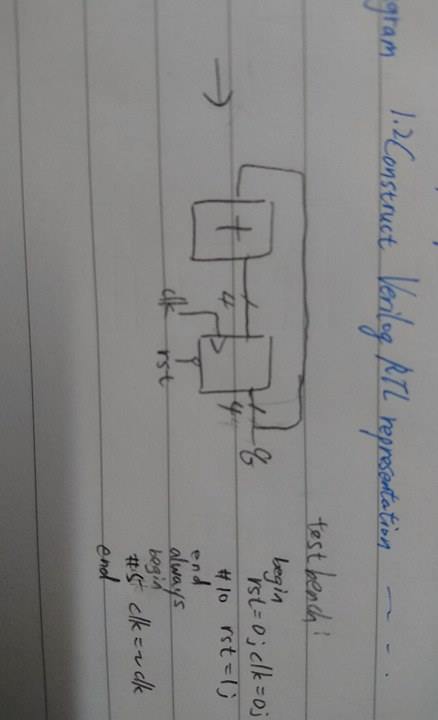 gram 1.2 Construct Verilog RTL representation ~ - .
+
4
4
q
clk
rst
testbench:
begin
rst=0; clk=0;
#10 rst=1;
end
always
begin
#5 clk=~clk
end